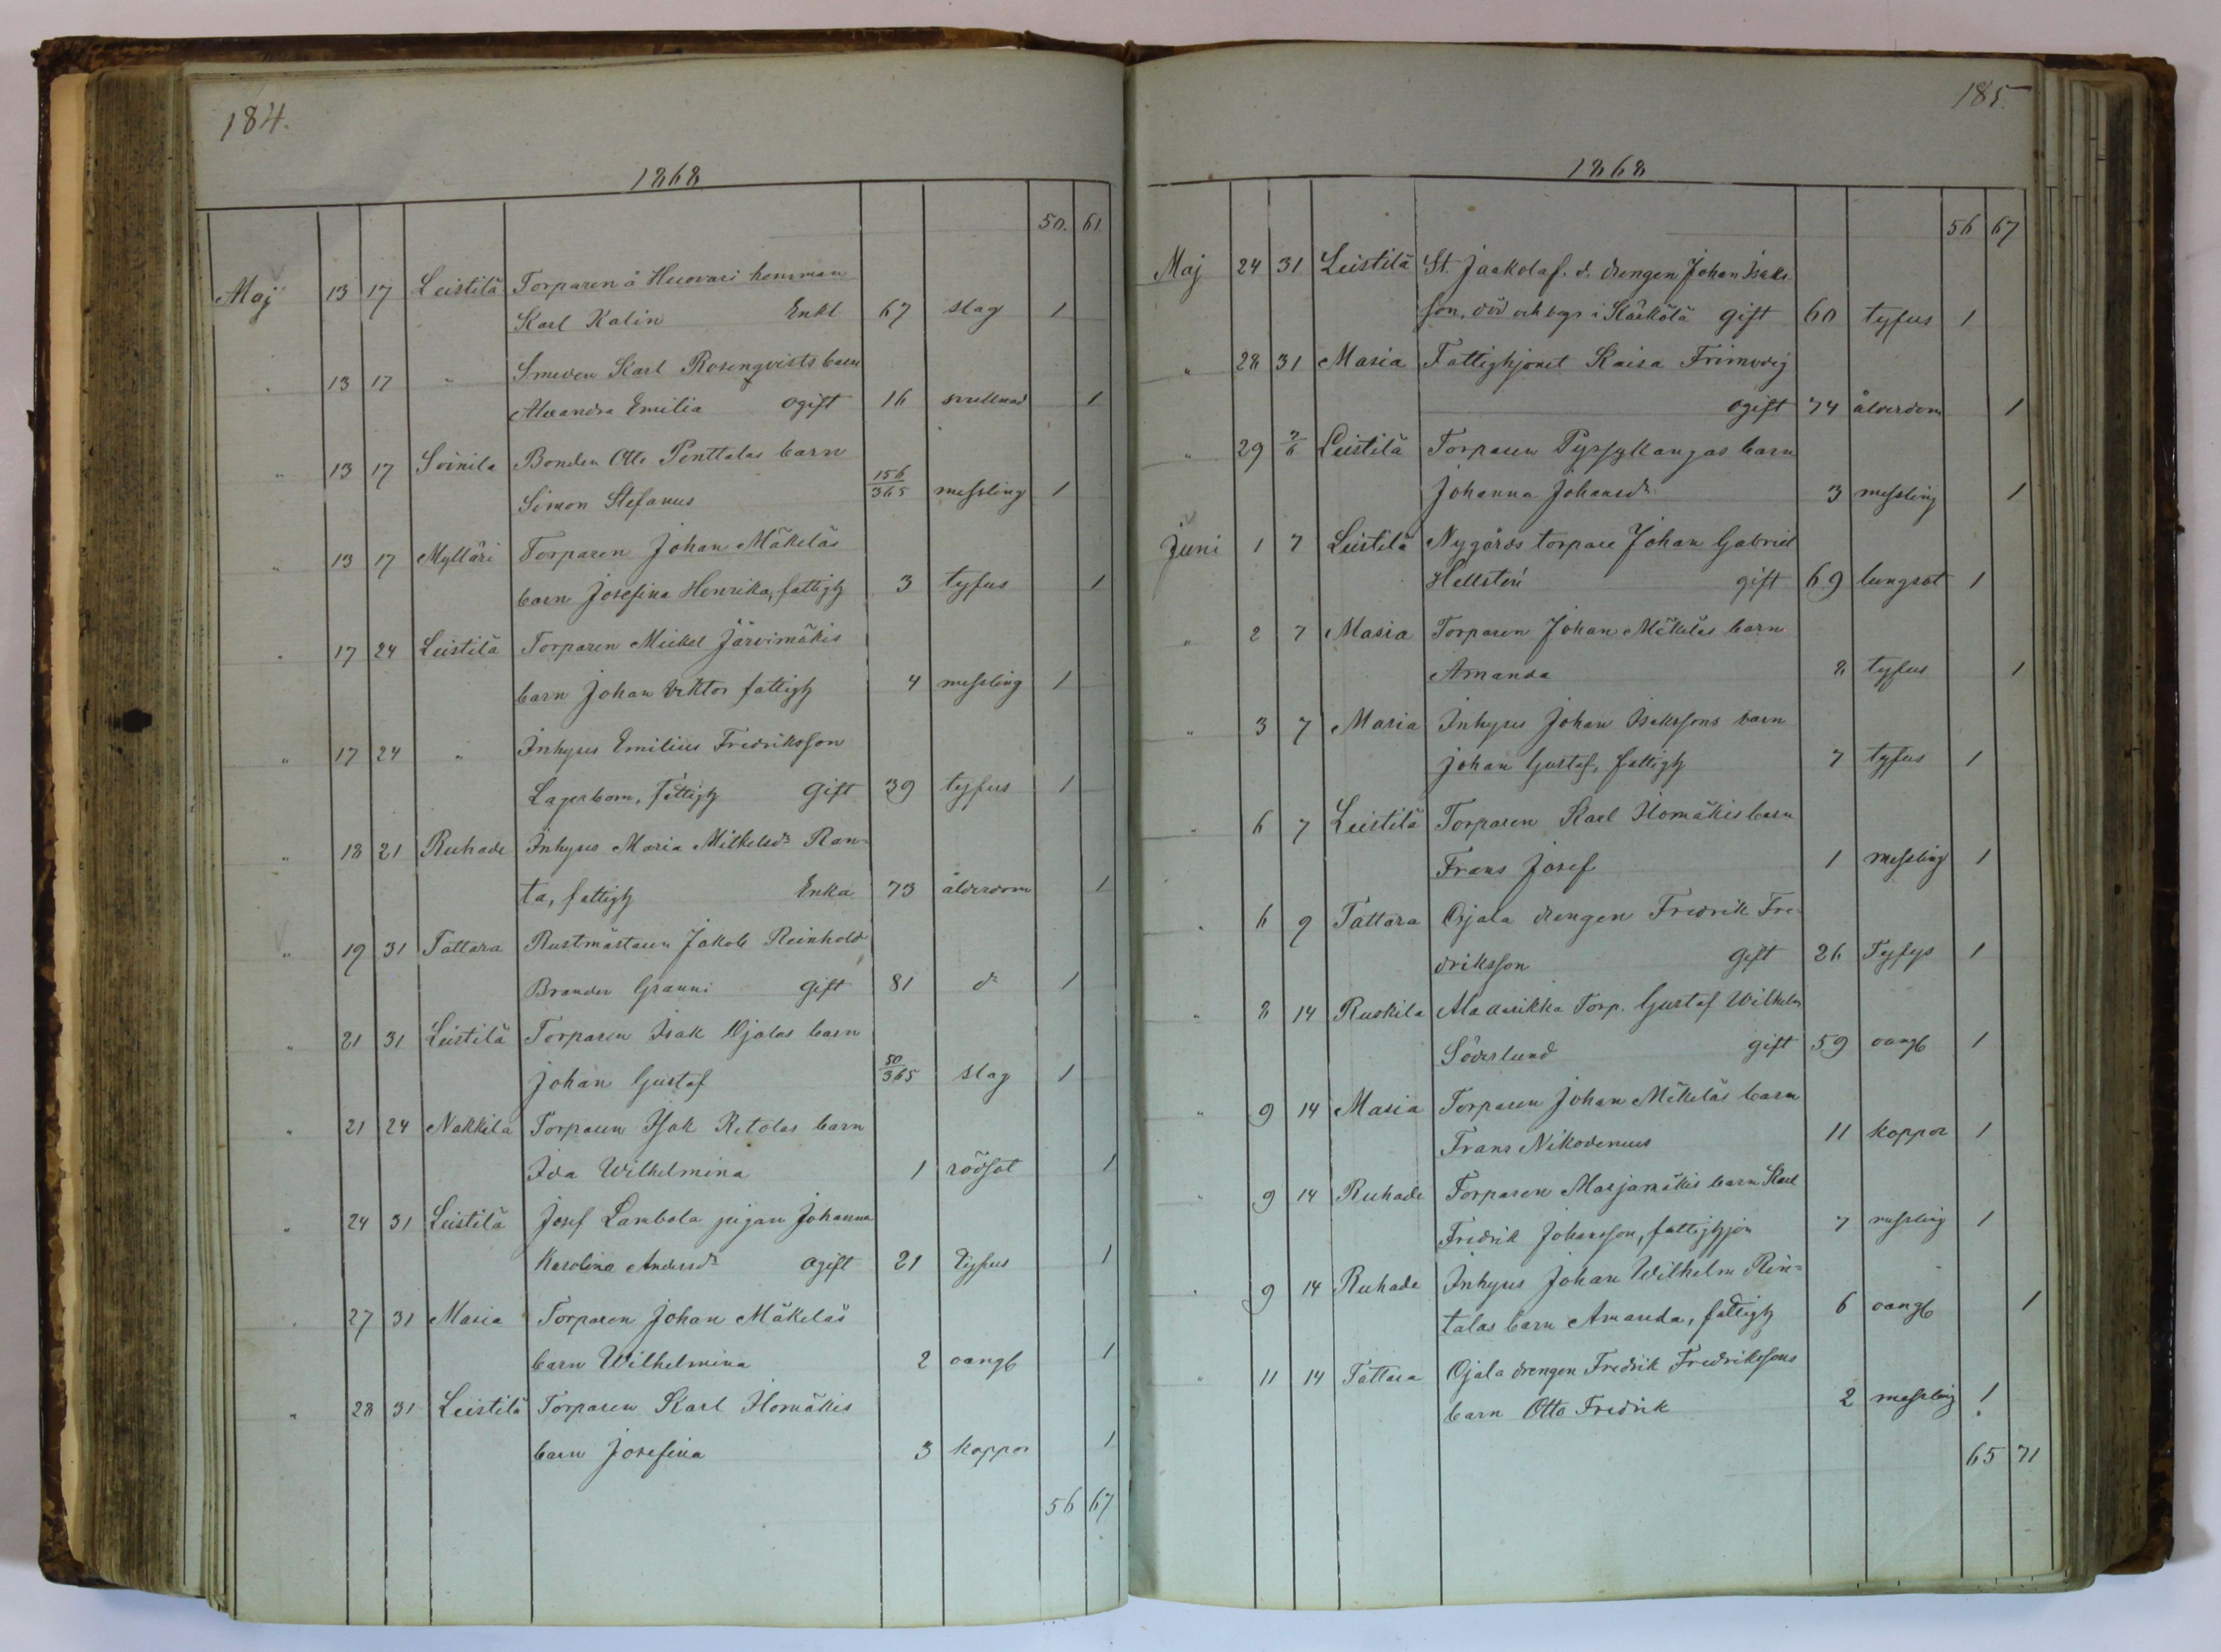 184.
1868
50. 61.
Maj 13 17 Leistilä Torparen å Huovari hemman
Karl Kalin Enkl 67 slag 1
" 13 17 " Smeden Karl Rosenqvists barn
Alexandra Emilia ogift 16 svullnad 1
" 13 17 Soinila Bonden Otto Penttalas barn
Simon Stefanus 156/365 messling 1
" 13 17 Mylläri Torparen Johan Mäkeläs
barn Josefina Henrika, fattigh 3 tyfus 1
" 17 24 Leistilä Torparen Mickel Järvimäkis
barn Johan Viktor fattigh 4 messling 1
" 17 24 " Inhyses Emilius Fredriksson
Lagerbom, fattigh Gift 39 tyfus 1
" 18 21 Ruhade Inhyses Maria Mikkelsdr Ran-
ta, fattigh Enka 73 ålderdom 1
" 19 31 Tattara Rustmästaren Jakob Reinhold
Brander Granni Gift 81 do 1
" 21 31 Leistilä Torparen Isak Ojalas barn
Johan Gustaf 50/365 slag 1
" 21 24 Nakkila Torparen Isak Ketolas barn
Ida Wilhelmina 1 rödsot 1
" 24 31 Leistilä Josef Lambola pigan Johanna
Karolina Andersdr ogift 21 Tyfus 1
" 27 31 Masia Torparen Johan Mäkeläs
barn Wilhelmina 2 oangb 1
" 28 31 Leistilä Torparen Karl Isomäkis
barn Josefina 3 koppor 1
56 67
185.
1868
56 67
Maj 24 31 Leistilä St. Jaakola f. d. drengen Johan Isaks
son, död och begr i Kärkölä gift 60 tyfus 1
" 28 31 Masia Fattighjonet Kaisa Frimodig
ogift 74 ålderdom 1
" 29 7/6 Leistilä Torparen Pyssykangas barn
Johanna Johansdr 3 messling 1
Juni 1 7 Leistilä Nygårds torpare Johan Gabriel
Hellstén gift 69 lungsot 1
" 2 7 Masia Torparen Johan Mäkeläs barn
Amanda 8 tyfus 1
" 3 7 Masia Inhyses Johan Isakssons barn
Johan Gustaf, fattigh 7 tyfus 1
" 6 7 Leistilä Torparen Karl Isomäkis barn
Frans Josef 1 messling 1
" 6 9 Tattara Ojala drengen Fredrik Fre-
driksson Gift 26 Tyfus 1
" 8 14 Ruskila Torp. Gustaf Wilhelm
Söderlund gift 59 oangb 1
" 9 14 Masia Torparen Johan Mäkeläs barn
Frans Nikodemus 11 koppor 1
" 9 14 Ruhade Torparen Marjamäkis barn Karl
Fredrik Johansson, fattighjon 7 messling 1
" 9 14 Ruhade Inhyses Johan Wilhelm Rin-
talas barn Amanda, fattigh 6 oangb 1
" 11 14 Tattara Ojala drengen Fredrik Fredrikssons
barn Otto Fredrik 2 messling 1
65 71